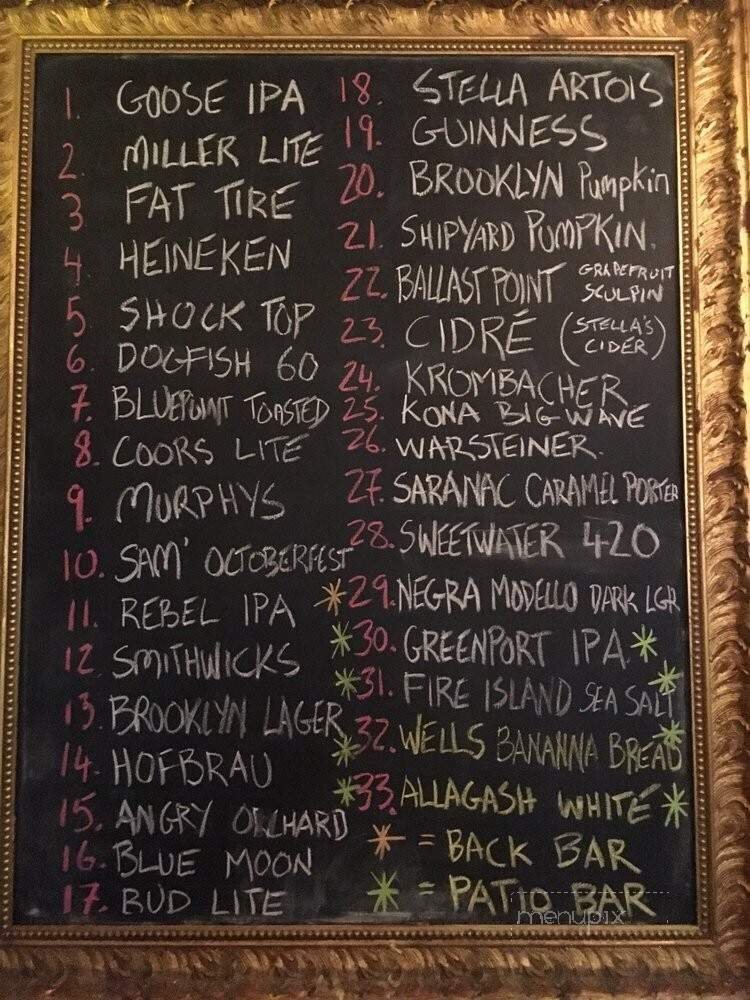 1. GOOSE IPA
2. MILLER LITE
3. FAT TIRE
4. HEINEKEN
5. SHOCK TOP
6. DOGFISH 60
7. BLUEPOINT TOASTED
8. COORS LITE
9. MURPHYS
10. SAM' OCTOBERFEST
11. REBEL IPA
12 SMITHWICKS
13. BROOKLYN LAGER
14. HOFBRAU
15. ANGRY ORCHARD
16. BLUE MOON
17. BUD LITE
18. STELLA ARTOIS
19. GUINNESS
20. BROOKLYN Pumpkin
21. SHIPYARD PUMPKIN.
22. BALLAST POINT GRAPEFRUIT
SCULPIN
23. CIDRÉ (STELLA'S
CIDER)
24. KROMBACHER
25. KONA BIG WAVE
26. WARSTEINER.
27. SARANAC CARAMEL PORTER
28. SWEETWATER 420
*29. NEGRA MODELLO DARK LGR
*30. GREENPORT IPA. *
*31. FIRE ISLAND SEA SALT *
*32. WELLS BANANNA BREAD *
*33. ALLAGASH WHITE *
* = BACK BAR
* = PATIO BAR
menupix